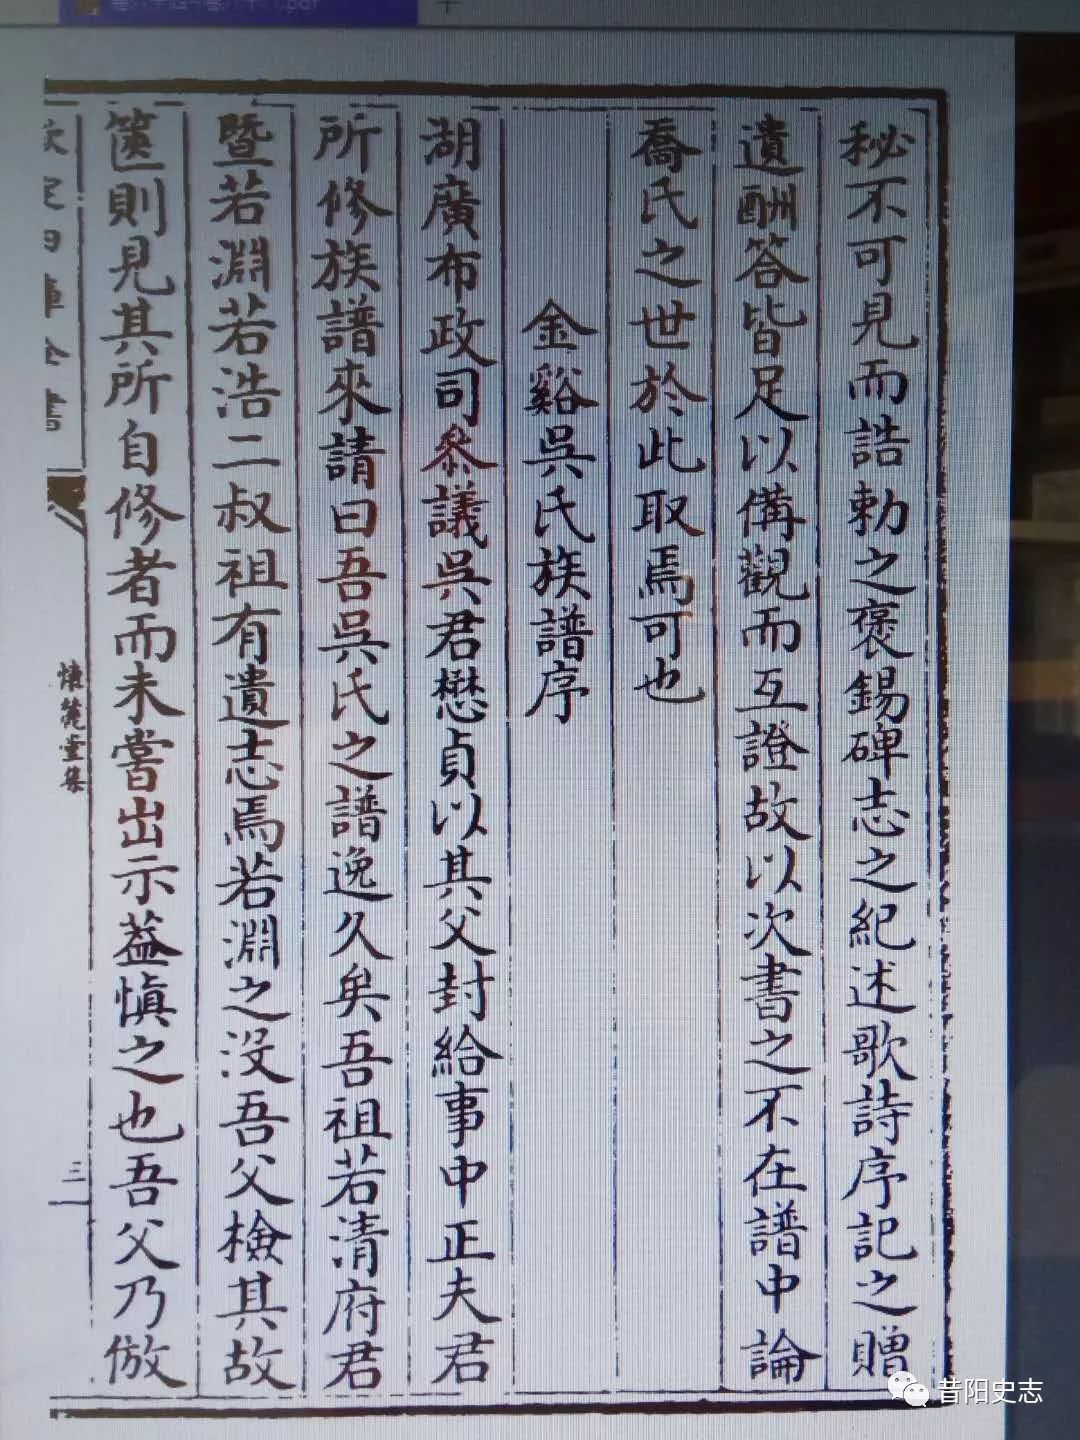 秘不可見而誥勅之褒錫碑志之紀述歌詩序記之贈
遺酬答皆足以備觀而互證故以次書之不在譜中論
喬氏之世於此取焉可也
金谿吳氏族譜序
胡廣布政司叅議吳君懋貞以其父封給事中正夫君
所修族譜來請曰吾吳氏之譜逸久矣吾祖若清府君
暨若淵若浩二叔祖有遺志焉若淵之沒吾父檢其故
篋則見其所自修者而未嘗出示葢慎之也吾父乃倣
欽定四庫全書
懷麓堂集
三
昔阳史志